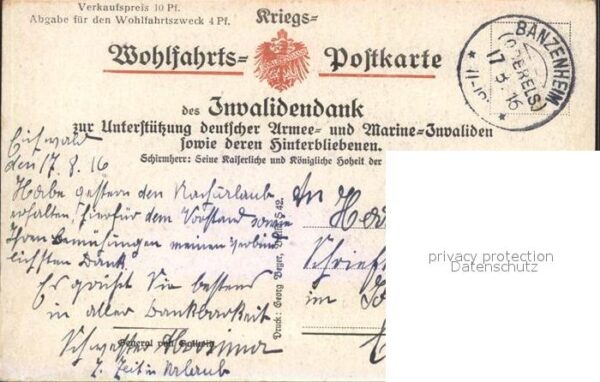 Verkaufspreis 10 Pf.
Abgabe für den Wohlfahrtszweck 4 Pf.
Kriegs=
Wohlfahrts= Postkarte
BANZENHEIM
(OBERELS.)
17.8.16
des Invalidendank
zur Unterstützung deutscher Armee- und Marine-Invaliden
sowie deren Hinterbliebenen.
Schirmherr: Seine Kaiserliche und Königliche Hoheit der
den 17.8.16
Habe gestern den Nachurlaub
erhalten, hierfür dem Vorstand sowie
Ihren Bemühungen meinen verbind
lichsten Dank.
Es grüßt Sie bestens
in aller Dankbarkeit
Schwester
z. Zeit in Urlaub
General von
An
Schrift
im
Druck: Georg Boger, Berlin S 42.
privacy protection
Datenschutz